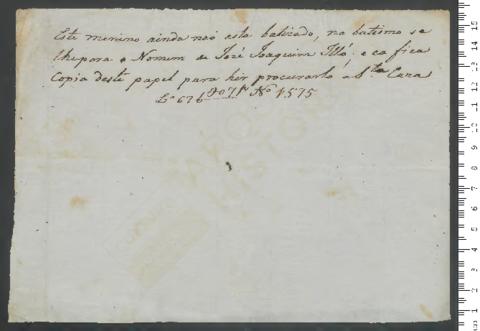 Este menino ainda naõ esta batizado, no batismo se
lhe pora o Nomem de José Joaquim e ca fica
Copia deste papel para hir procurarlo a S.ta Caza
L.o 676 N.o 1575